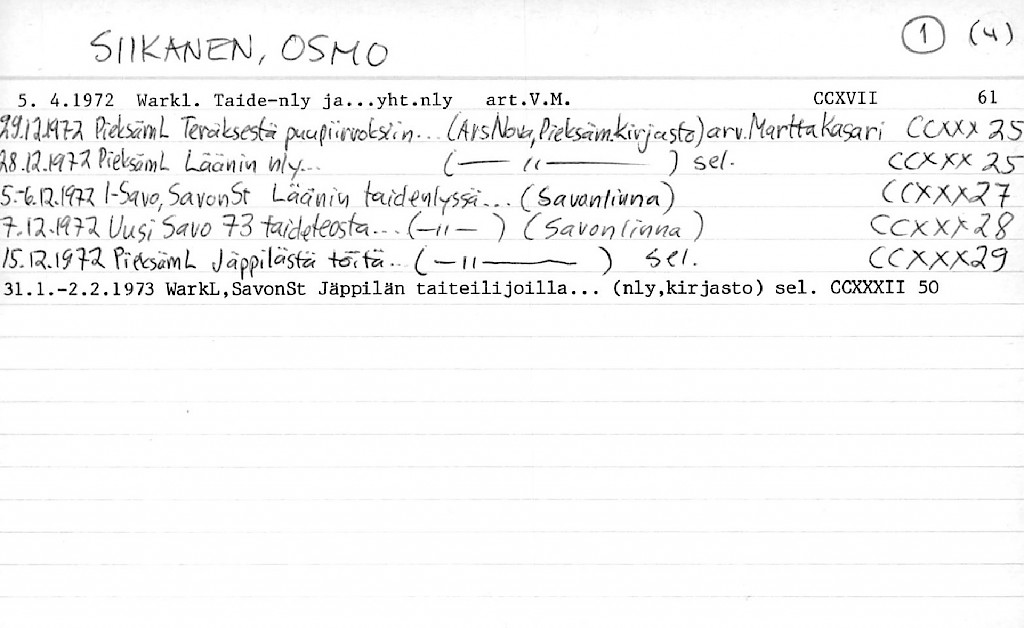 SIIKANEN, OSMO 1 (4)
5. 4.1972 Warkl. Taide-nly ja...yht.nly art.V.M. CCXVII 61
29.12.1972 PieksämL Teräksestä puupiirroksiin... (Ars Nova, Pieksäm.kirjasto) arv. Martta Kasari CCXXX 25
28.12.1972 PieksämL Läänin nly... (— " —) sel. CCXXX 25
5.-6.12.1972 I-Savo, SavonSt Läänin taidenlyssä... (Savonlinna) CCXXX27
7.12.1972 Uusi Savo 73 taideteosta... (— " —) (Savonlinna) CCXXX28
15.12.1972 PieksämL Jäppilästä töitä.. (— " —) sel. CCXXX29
31.1.-2.2.1973 WarkL,SavonSt Jäppilän taiteilijoilla... (nly,kirjasto) sel. CCXXXII 50